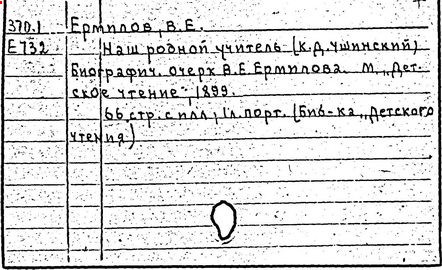 370.1 Ермилов, В.Е.
Е732 Наш родной учитель (К.Д.Ушинский)
Биографич. очерк В.Е.Ермилова. М., „Дет-
ское чтение", 1899.
66 стр. с илл., 1 л. порт. (Биб-ка „Детского
чтения")